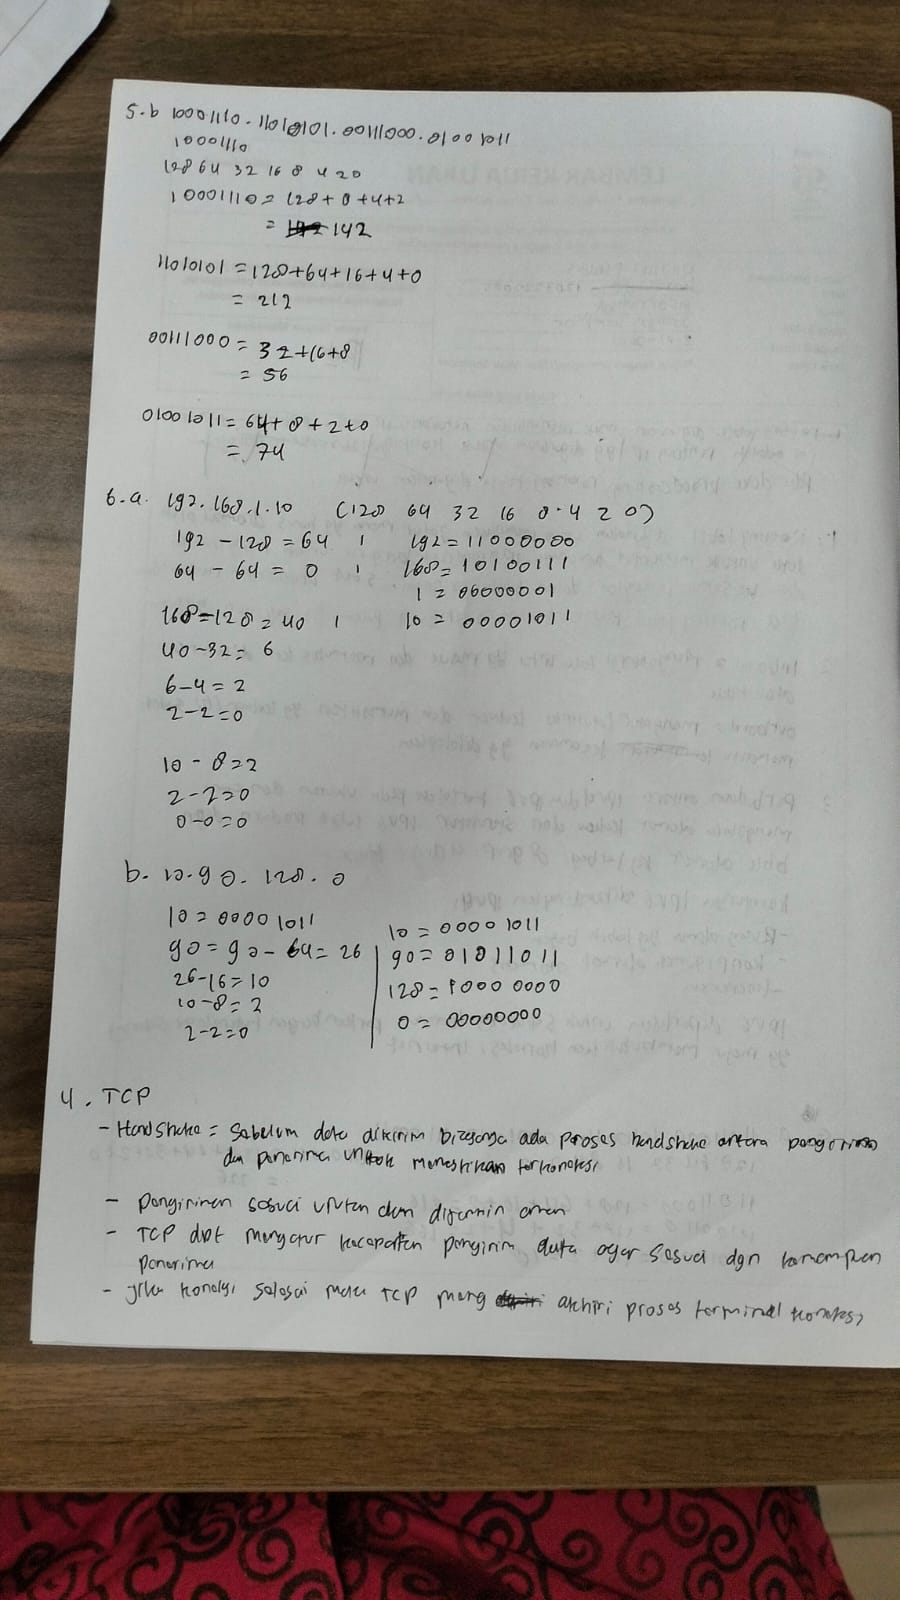 5.b 10001110. 11010101. 00111000. 01001011
10001110
128 64 32 16 8 4 2 0
10001110 = 128 + 8 + 4 + 2
= 142
11010101 = 128+64+16+4+0
= 212
00111000 = 32+16+8
= 56
01001011 = 64+8+2+0
= 74
6.a. 192.168.1.10 (128 64 32 16 8 4 2 0)
192 - 128 = 64 1 192 = 11000000
64 - 64 = 0 1 168 = 10100111
1 = 00000001
168 - 128 = 40 1 10 = 00001011
40-32 = 6
6-4 = 2
2-2 = 0
10 - 8 = 2
2-2 = 0
0-0 = 0
b. 10.90.128.0
10 = 00001011 10 = 00001011
90 = 90 - 64 = 26 90 = 01011011
26-16 = 10 128 = 1000 0000
10-8 = 2 0 = 00000000
2-2 = 0
4. TCP
- Handshake = Sebelum data dikirim biasanya ada proses handshake antara pengirim
dan penerima untuk memastikan terkoneksi
- pengiriman sesuai urutan dan dijamin aman
- TCP dpt mengatur kecepatan pengirim data agar sesuai dgn kemampuan
penerima
- jika koneksi selesai maka TCP meng akhiri proses terminal koneksi